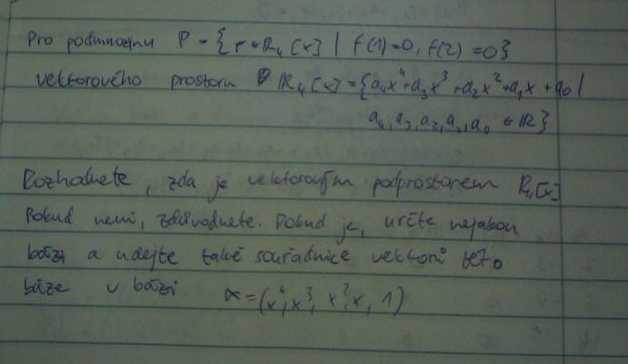 Pro podmnožinu P = {f ∈ R₄[x] | f(1)=0, f(2)=0}
vektorového prostoru R₄[x] = {a₄x⁴+a₃x³+a₂x²+a₁x+a₀ |
a₄,a₃,a₂,a₁,a₀ ∈ R}
Rozhodnete, zda je vektorovým podprostorem R₄[x]
Pokud není, zdůvodnete. Pokud je, určte nejakou
bázi a udejte také souřadnice vektorů této
báze v bázi α=(x⁴,x³,x²,x,1)